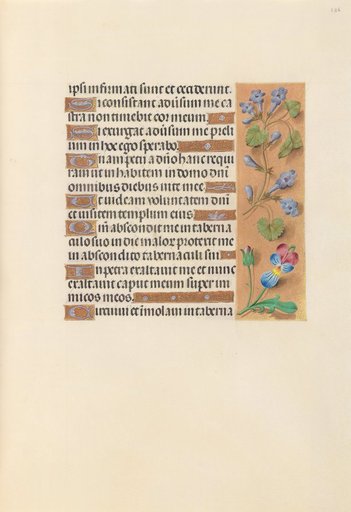 ipsi infirmati sunt et ceciderunt.
Si consistant adusum me ca
stra non timebit cor meum.
Si exurgat adusum me preli
um in hoc ego sperabo.
Unam peti a dno hanc requi
ram ut inhabitem in domo dni
omnibus diebus vite mee
Ut videam voluntatem dni
et visitem templum eius.
Qm abscondit me in taberna
culo suo in die malor protexit me
in abscondito tabernaculi sui
In petra exaltavit me et nunc
exaltavit caput meum super ini
micos meos.
Circuivi et imolavi in taberna